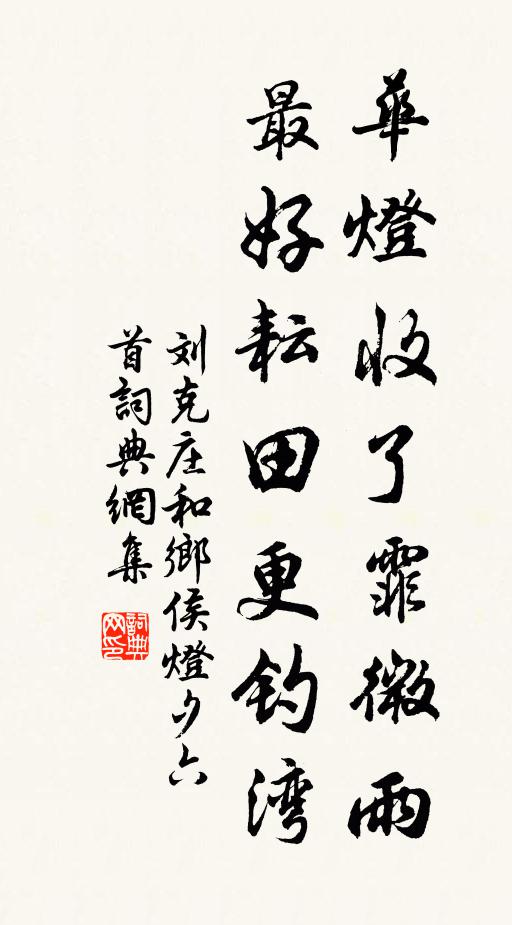 華燈收了霏微雨
最好耘田更釣湾
刘克庄和鄉侯燈夕六
首詞典網集
詞典
网印